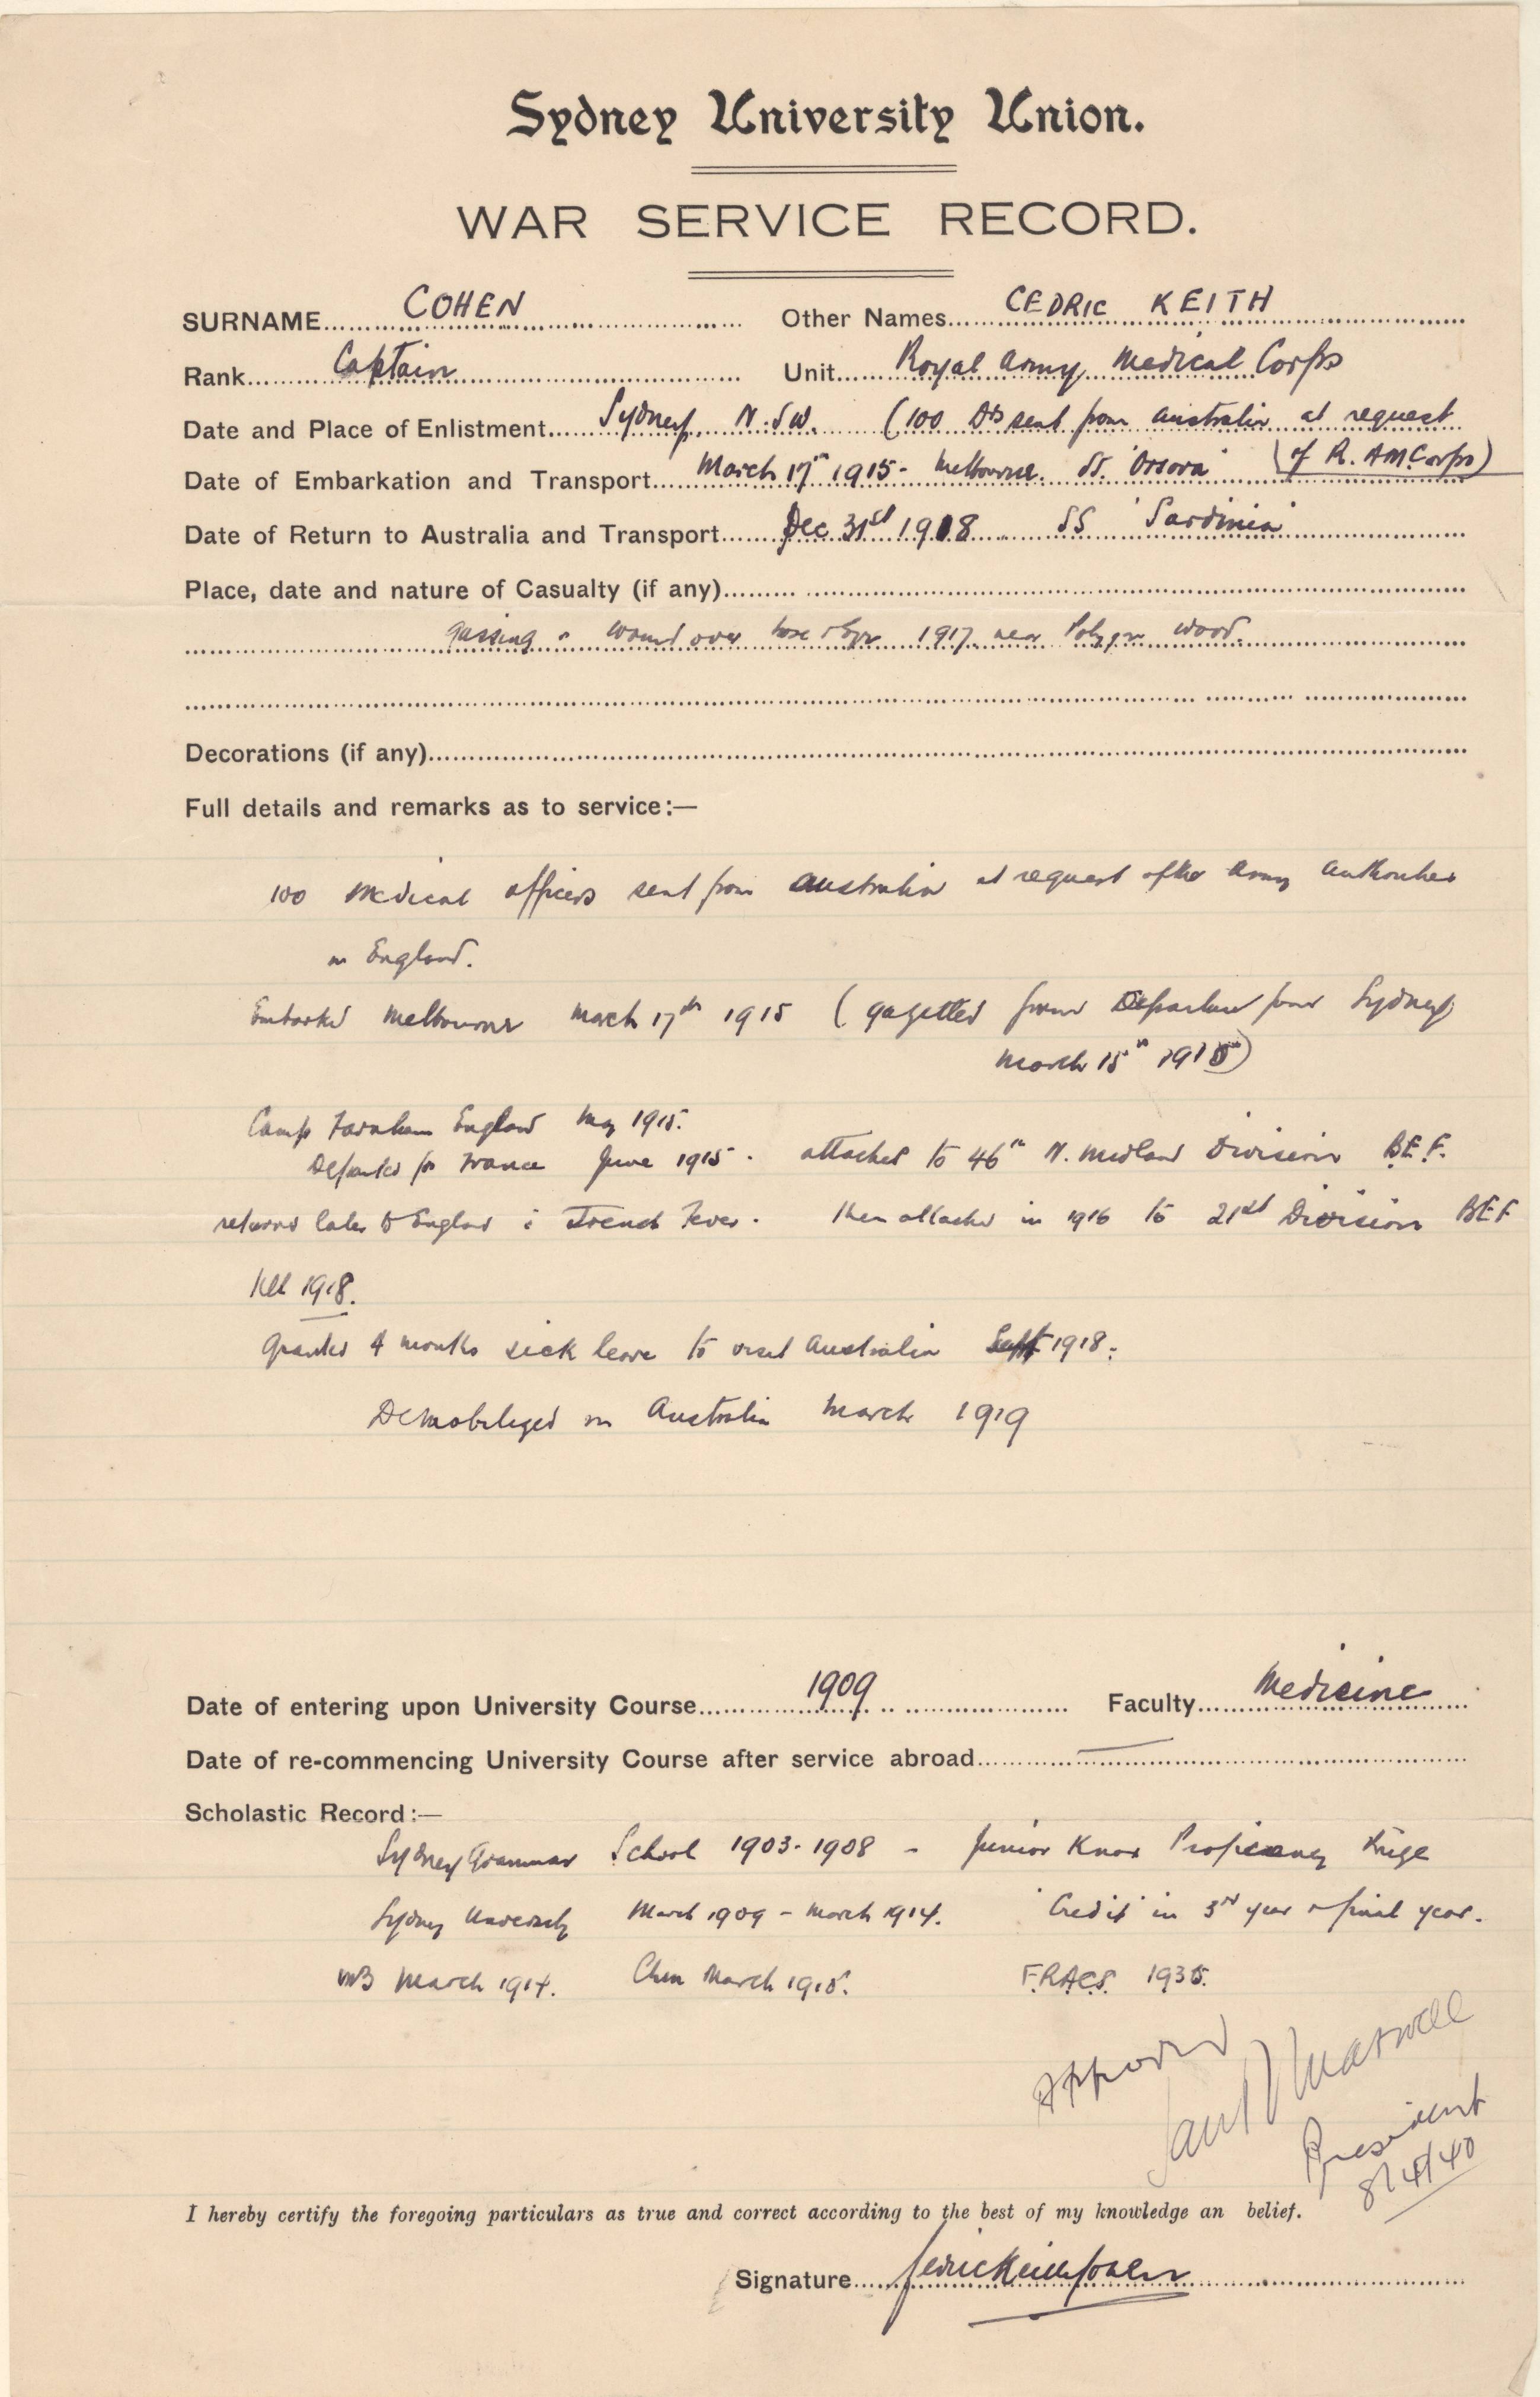 Sydney University Union.
WAR SERVICE RECORD.
SURNAME COHEN Other Names CEDRIC KEITH
Rank Captain Unit Royal Army Medical Corps
Date and Place of Enlistment Sydney, N.S.W. (100 Drs sent from Australia at request
Date of Embarkation and Transport March 17th 1915 - Melbourne. SS. 'Orsova' (of R.A.M.Corps)
Date of Return to Australia and Transport Dec 31st 1918 SS 'Sardinia'
Place, date and nature of Casualty (if any)
gassing & wound over 1917 near Polygon Wood.
Decorations (if any)
Full details and remarks as to service:—
100 medical officers sent from Australia at request of the Army Authorities
in England.
Embarked Melbourne March 17th 1915 (gazetted from Departure from Sydney
March 15th 1915)
Camp Farnham England May 1915.
Departed for France June 1915. attached to 46th N. Midland Division B.E.F.
returned later to England c Trench Fever. then attached in 1916 to 21st Division BEF
till 1918.
Granted 4 months sick leave to visit Australia Sept 1918.
Demobilized in Australia March 1919
Date of entering upon University Course 1909 Faculty Medicine
Date of re-commencing University Course after service abroad —
Scholastic Record:—
Sydney Grammar School 1903-1908 - Junior Knox Proficiency Prize
Sydney University March 1909 - March 1914. 'Credit' in 3rd year & final year.
MB March 1914. ChM March 1915. F.R.A.C.S. 1935.
Approved
Maxwell
President
8/4/40
I hereby certify the foregoing particulars as true and correct according to the best of my knowledge an belief.
Signature Cedric Keith Cohen